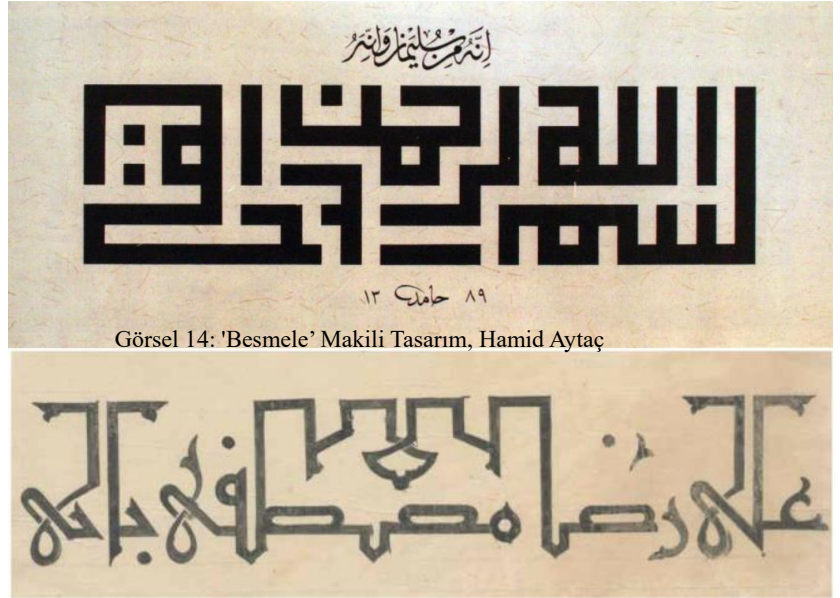 إِنَّهُ مِنْ سُلَيْمَانَ وَإِنَّهُ
بسم الله الرحمن الرحيم
٨٩ حامد ١٣
Görsel 14: 'Besmele’ Makili Tasarım, Hamid Aytaç
علی رضا مصطفی